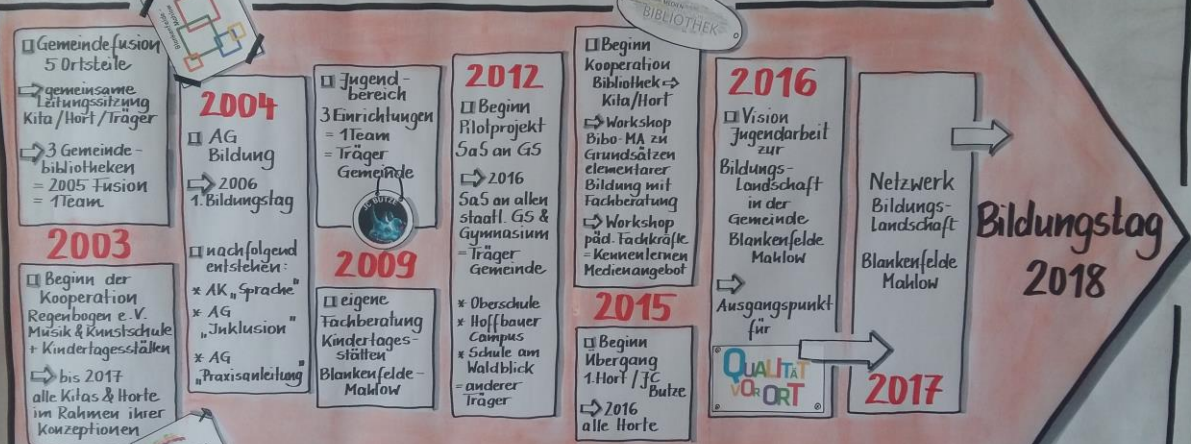 Gemeindefusion
5 Ortsteile
gemeinsame
Leitungssitzung
Kita/Hort/Träger
3 Gemeinde-
bibliotheken
= 2005 Fusion
= 1Team
2003
Beginn der
Kooperation
Regenbogen e.V.
Musik & Kunstschule
+ Kindertagesstätten
bis 2017
alle Kitas & Horte
im Rahmen ihrer
Konzeptionen
Blankenfelde-
Mahlow
2004
AG
Bildung
2006
1. Bildungstag
nachfolgend
entstehen:
* AK „Sprache"
* AG
„Inklusion"
* AG
„Praxisanleitung"
Jugend-
bereich
3 Einrichtungen
= 1Team
= Träger
Gemeinde
JC BUTZE
2009
eigene
Fachberatung
Kindertages-
stätten
Blankenfelde-
Mahlow
2012
Beginn
Pilotprojekt
SaS an GS
2016
SaS an allen
staatl. GS &
Gymnasium
= Träger
Gemeinde
* Oberschule
* Hoffbauer
Campus
* Schule am
Waldblick
= anderer
Träger
BIBLIOTHEK
Beginn
Kooperation
Bibliothek
Kita/Hort
Workshop
Bibo-MA zu
Grundsätzen
elementarer
Bildung mit
Fachberatung
Workshop
päd. Fachkräfte
= Kennenlernen
Medienangebot
2015
Beginn
Übergang
1. Hort / JC
Butze
2016
alle Horte
2016
Vision
Jugendarbeit
zur
Bildungs-
Landschaft
in der
Gemeinde
Blankenfelde
Mahlow
Ausgangspunkt
für
QUALITÄT
VOR ORT
Netzwerk
Bildungs-
Landschaft
Blankenfelde
Mahlow
2017
Bildungstag
2018